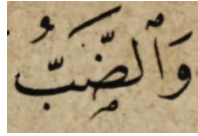 وَالضَّبُّ